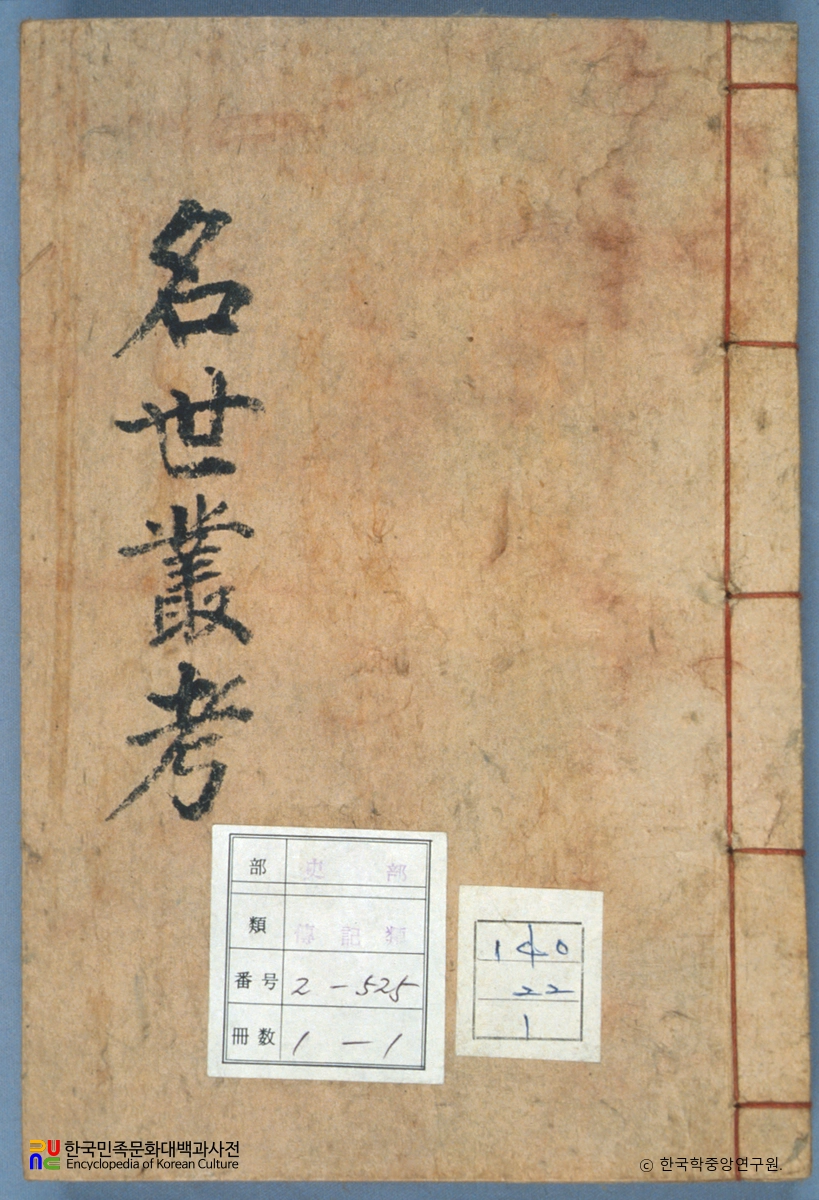 名世叢考
部 史部
類 傳記類
番号 2-525
冊数 1-1
140
22
1
한국민족문화대백과사전
Encyclopedia of Korean Culture
© 한국학중앙연구원